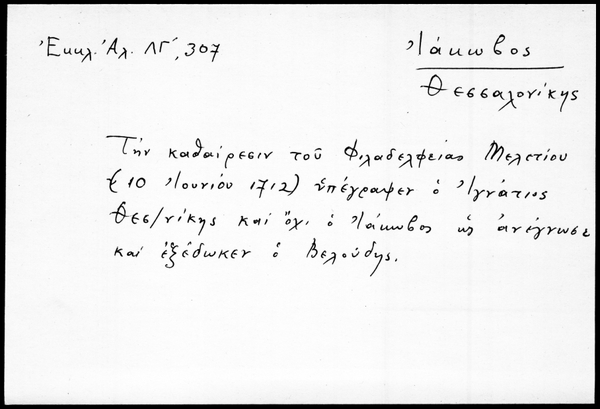 Ἐκκλ. Ἀλ. ΛΓ΄, 307
Ἰάκωβος
Θεσσαλονίκης
Τὴν καθαίρεσιν τοῦ Φιλαδελφείας Μελετίου
(10 Ἰουνίου 1712) ὑπέγραψεν ὁ Ἰγνάτιος
Θεσ/νίκης καὶ ὄχι ὁ Ἰάκωβος ὡς ἀνέγνωσε
καὶ ἐξέδωκεν ὁ Βελούδης.